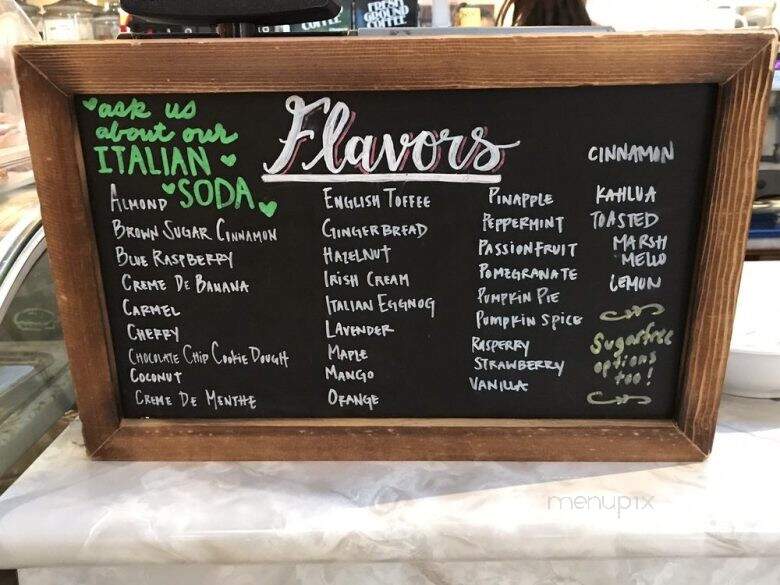 FRESH
GROUND
COFFEE
COFFEE
ask us
about our
ITALIAN
SODA
Flavors
ALMOND
BROWN SUGAR CINNAMON
BLUE RASPBERRY
CREME DE BANANA
CARMEL
CHERRY
CHOCOLATE CHIP COOKIE DOUGH
COCONUT
CREME DE MENTHE
ENGLISH TOFFEE
GINGERBREAD
HAZELNUT
IRISH CREAM
ITALIAN EGGNOG
LAVENDER
MAPLE
MANGO
ORANGE
PINAPPLE
PEPPERMINT
PASSIONFRUIT
POMEGRANATE
PUMPKIN PIE
PUMPKIN SPICE
RASPERRY
STRAWBERRY
VANILLA
CINNAMON
KAHLUA
TOASTED
MARSH
MELLO
LEMON
Sugarfree
options
too!
menupix